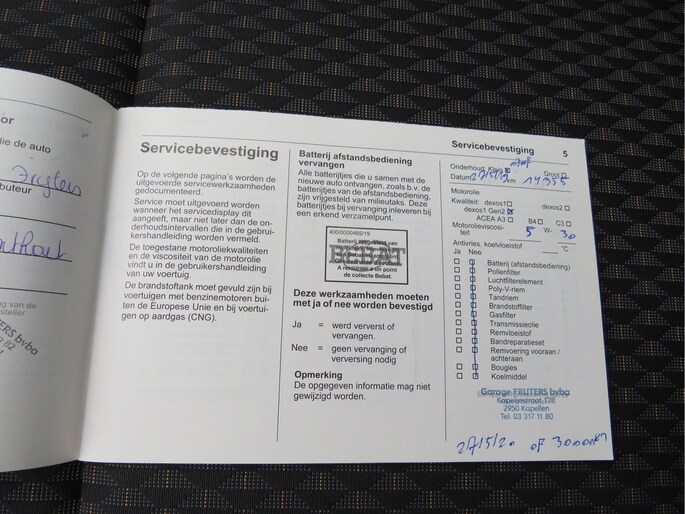 or
die de auto
buteur
Servicebevestiging
Op de volgende pagina's worden de
uitgevoerde servicewerkzaamheden
gedocumenteerd.
Service moet uitgevoerd worden
wanneer het servicedisplay dit
aangeeft, maar niet later dan de on-
derhoudsintervallen die in de gebrui-
kershandleiding worden vermeld.
De toegestane motoroliekwaliteiten
en de viscositeit van de motorolie
vindt u in de gebruikershandleiding
van uw voertuig.
De brandstoftank moet gevuld zijn bij
voertuigen met benzinemotoren bui-
ten de Europese Unie en bij voertui-
gen op aardgas (CNG).
Batterij afstandsbediening
vervangen
Alle batterijtjes die u samen met de
nieuwe auto ontvangen, zoals b.v. de
batterijtjes van de afstandsbediening,
zijn vrijgesteld van milieutaks. Deze
batterijtjes bij vervanging inleveren bij
een erkend verzamelpunt.
400/0000465/19
BEBAT
A retourner à un point
de collecte Bebat.
Deze werkzaamheden moeten
met ja of nee worden bevestigd
Ja = werd ververst of
vervangen.
Nee = geen vervanging of
verversing nodig
Opmerking
De opgegeven informatie mag niet
gewijzigd worden.
Servicebevestiging 5
Onderhoud, Klein Groot
Datum km 14355
Motorolie
Kwaliteit: dexos1 dexos2
dexos1 Gen2
ACEA A3 B4 C3
Motorolieviscosi-
teit 5 W- 30
Antivries, koelvloeistof °C
Ja Nee
Batterij (afstandsbediening)
Pollenfilter
Luchtfilterelement
Poly-V-riem
Tandriem
Brandstoffilter
Gasfilter
Transmissieolie
Remvloeistof
Bandreparatieset
Remvoering vooraan /
achteraan
Bougies
Koelmiddel
Garage FRUTERS bvba
Kapelsestraat 128
2950 Kapellen
Tel. 03 317 11 80
27/5/20 of 30000km